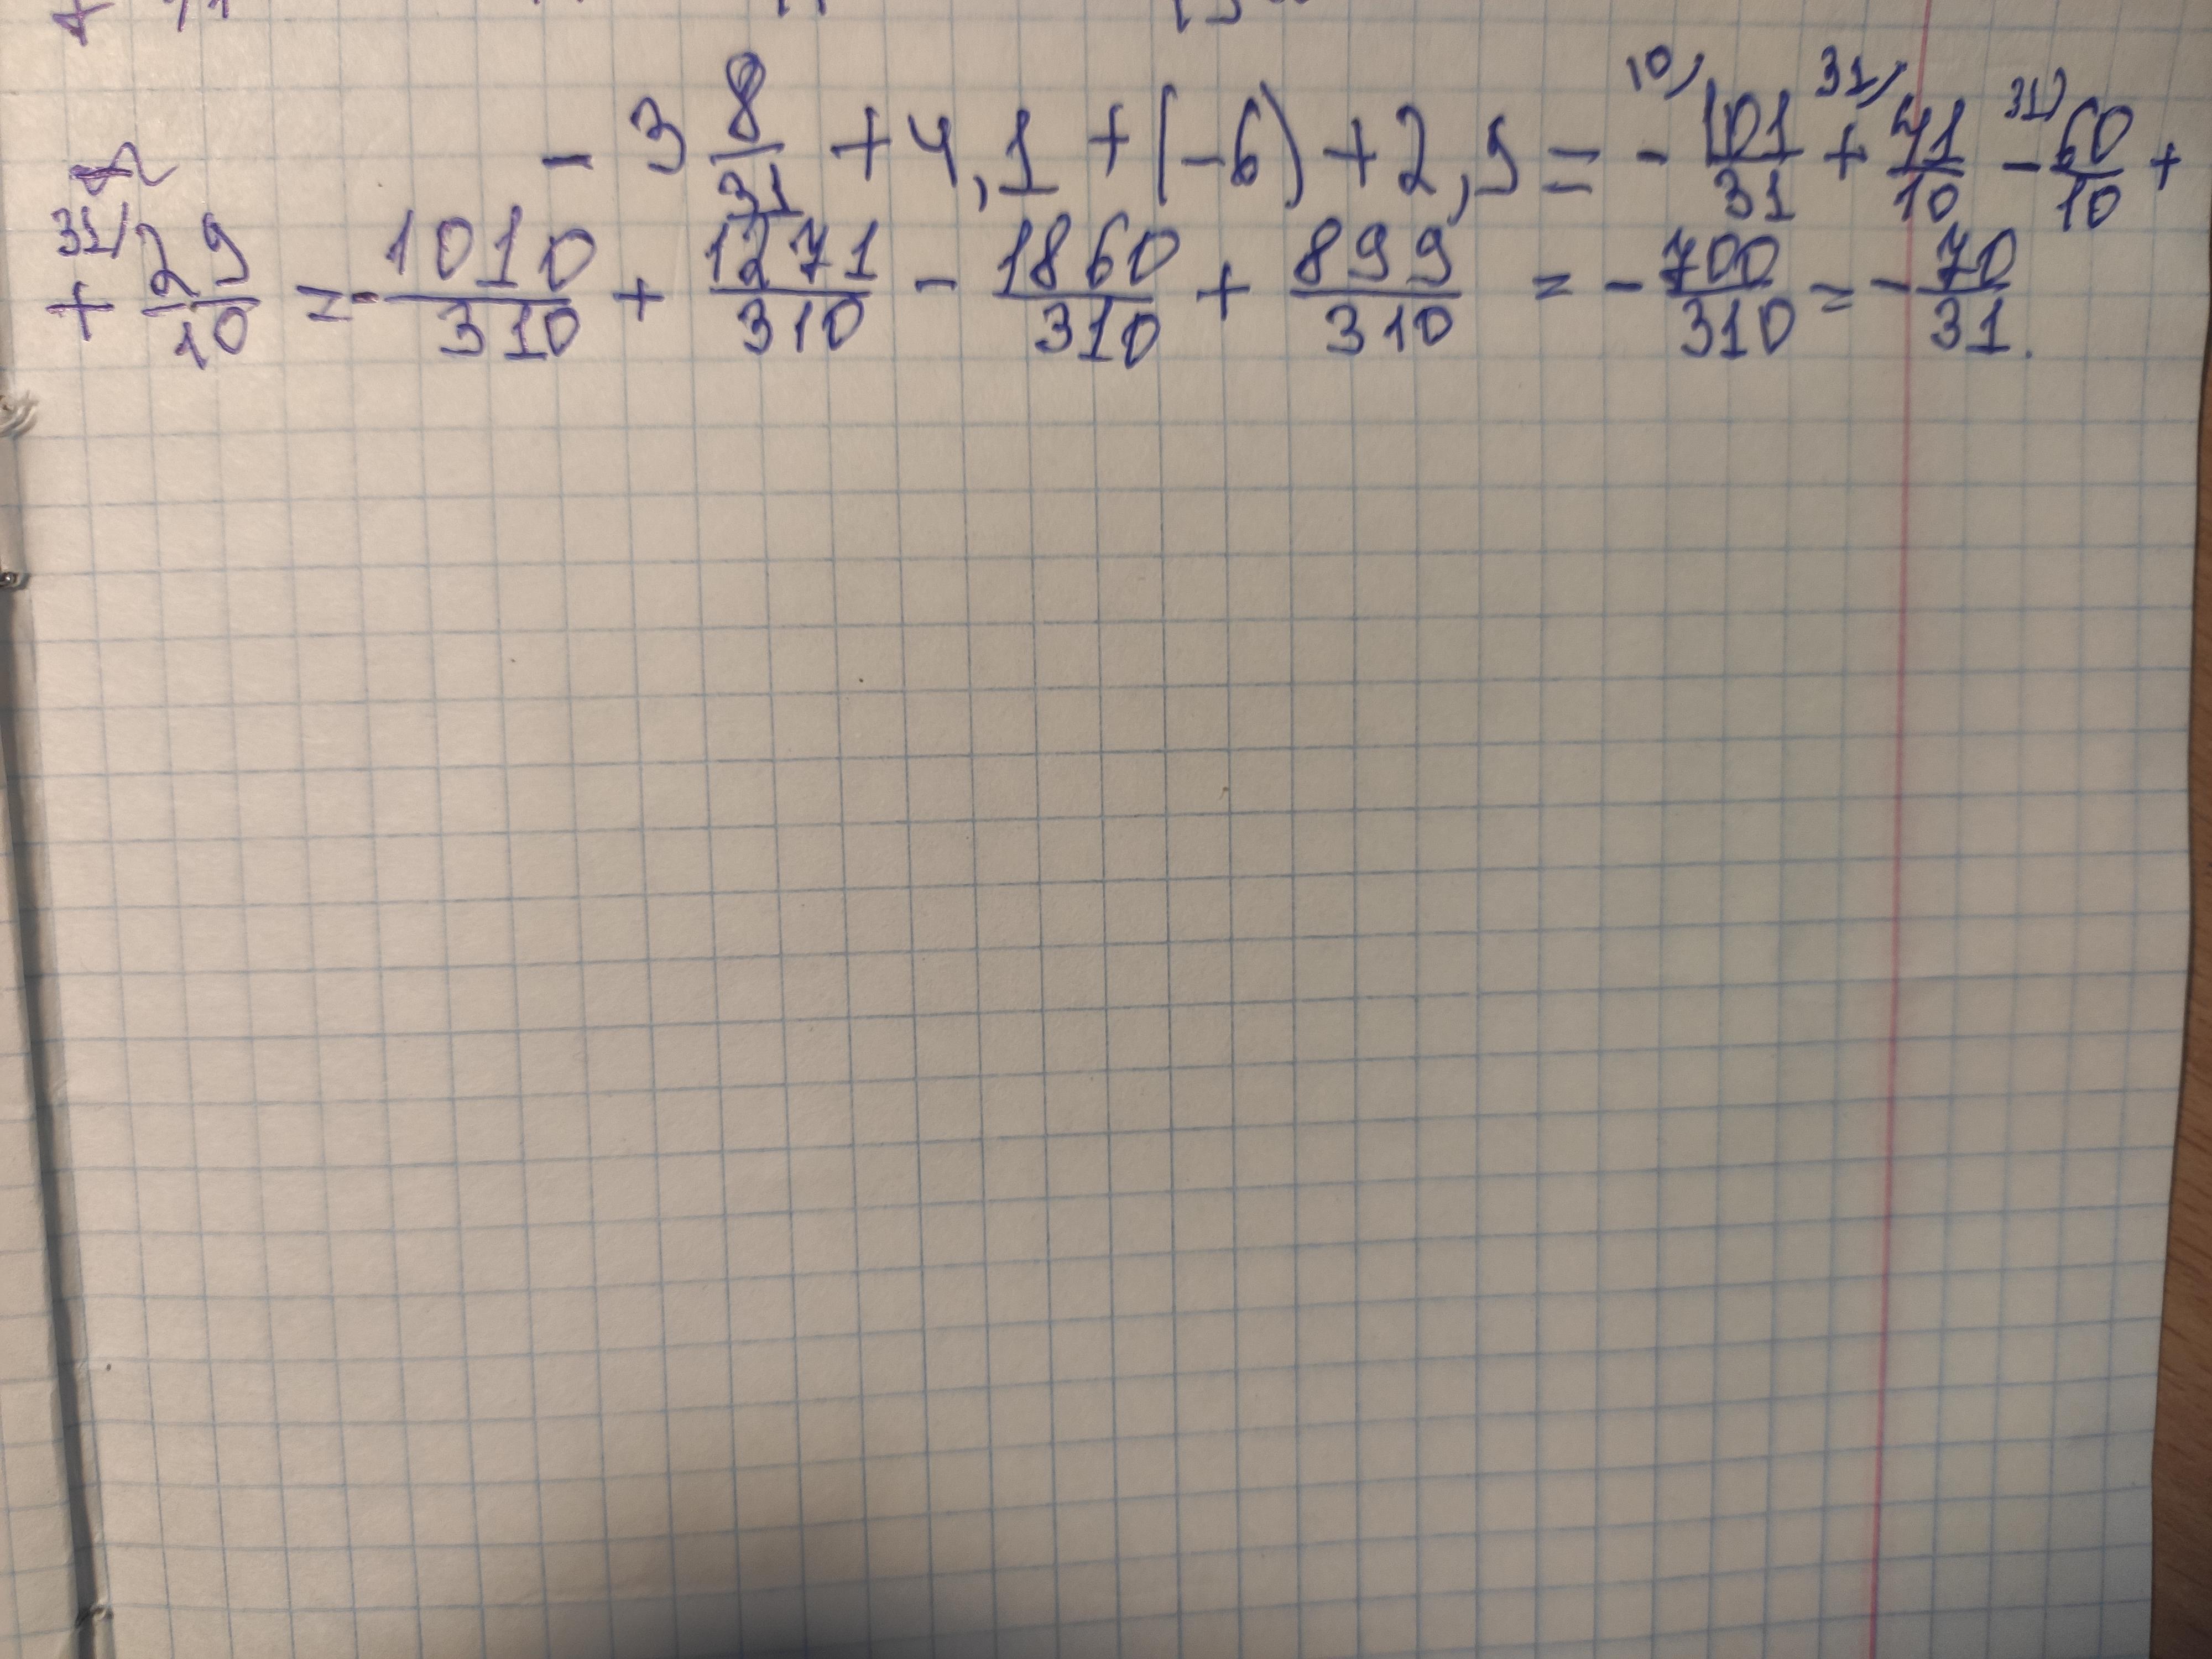 - 3 8/31 + 4,1 + (-6) + 2,9 = - 10) 101/31 + 31) 41/10 - 31) 60/10 +
+ 31) 29/10 = - 1010/310 + 1271/310 - 1860/310 + 899/310 = - 700/310 = - 70/31.